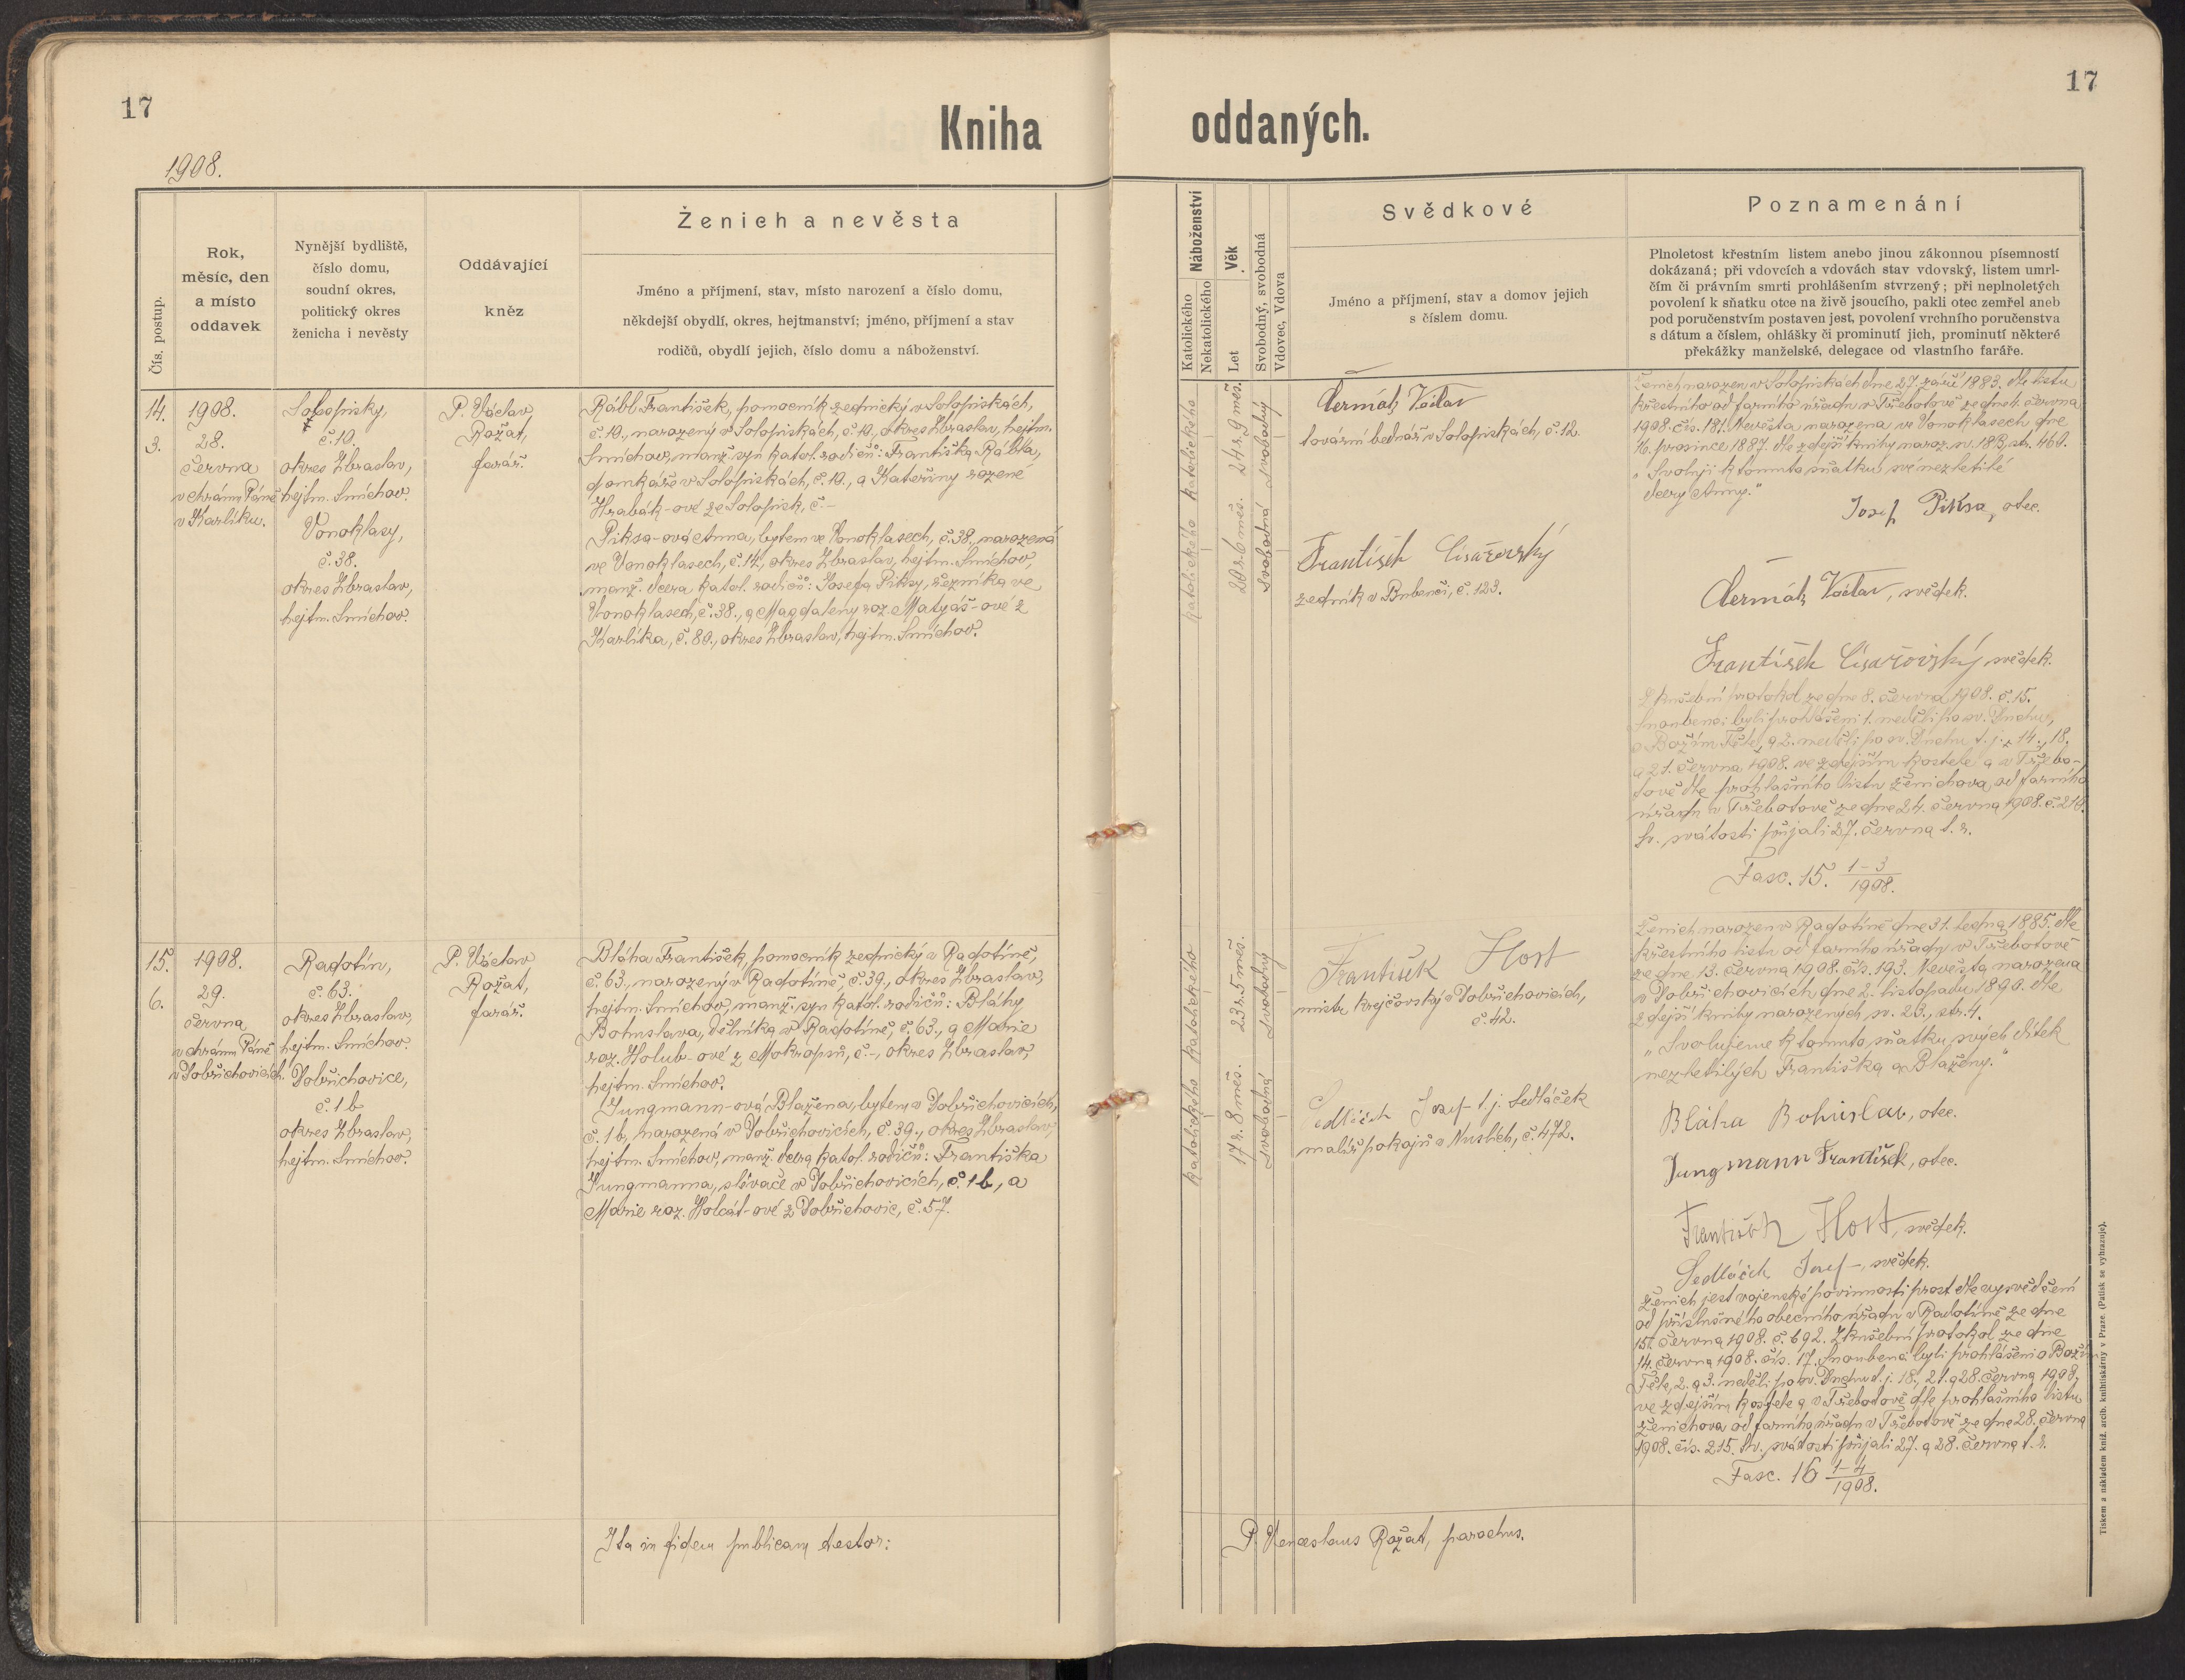 17
Kniha
1908.
Čís. postup.
Rok,
měsíc, den
a místo
oddavek
Nynější bydliště,
číslo domu,
soudní okres,
politický okres
ženicha i nevěsty
Oddávající
kněz
Ženich a nevěsta
Jméno a příjmení, stav, místo narození a číslo domu,
někdejší obydlí, okres, hejtmanství; jméno, příjmení a stav
rodičů, obydlí jejich, číslo domu a náboženství.
14.
3.
1908.
28.
června
v chrámu Páně
v Karlíku.
Solopisky,
č. 10.
okres Zbraslav,
hejtm. Smíchov.
Vonoklasy,
č. 38.
okres Zbraslav,
hejtm. Smíchov.
P. Václav
Rožat,
farář.
Rábl František, pomocník zednický v Solopiskách,
č. 10., narozený v Solopiskách, č. 10., okres Zbraslav, hejtm.
Smíchov, manž. syn katol. rodičů: Františka Rábla,
domkáře v Solopiskách, č. 10., a Kateřiny rozené
Hrabák-ové ze Solopisk, č. -
Piksa-ová Anna, bytem ve Vonoklasech, č. 38., narozená
ve Vonoklasech, č. 14., okres Zbraslav, hejtm. Smíchov,
manž. dcera katol. rodičů: Josefa Piksy, řezníka ve
Vonoklasech, č. 38., a Magdaleny roz. Matyáš-ové z
Karlíka, č. 80., okres Zbraslav, hejtm. Smíchov.
15.
6.
1908.
29.
června
v chrámu Páně
v Dobřichovicích.
Radotín,
č. 63.
okres Zbraslav,
hejtm. Smíchov.
Dobřichovice,
č. 1 b
okres Zbraslav,
hejtm. Smíchov.
P. Václav
Rožat,
farář.
Bláha František, pomocník zednický v Radotíně,
č. 63., narozený v Radotíně, č. 39., okres Zbraslav,
hejtm. Smíchov, manž. syn katol. rodičů: Bláhy
Bohuslava, dělníka v Radotíně, č. 63., a Marie
roz. Holub-ové z Mokropsů, č. -, okres Zbraslav,
hejtm. Smíchov.
Jungmann-ová Blažena, bytem v Dobřichovicích,
č. 1 b, narozená v Dobřichovicích, č. 39., okres Zbraslav,
hejtm. Smíchov, manž. dcera katol. rodičů: Františka
Jungmanna, slévače v Dobřichovicích, č. 1 b, a
Marie roz. Holcát-ové z Dobřichovic, č. 57.
Ita in fidem publicam testor:
17
oddaných.
Náboženství
Katolického
Nekatolického
Věk
Let
Svobodný, svobodná
Vdovec, Vdova
Svědkové
Jméno a příjmení, stav a domov jejich
s číslem domu.
Poznamenání
Plnoletost křestním listem anebo jinou zákonnou písemností
dokázaná; při vdovcích a vdovách stav vdovský, listem umrl-
čím či právním smrti prohlášením stvrzený; při neplnoletých
povolení k sňatku otce na živě jsoucího, pakli otec zemřel aneb
pod poručenstvím postaven jest, povolení vrchního poručenstva
s dátum a číslem, ohlášky či prominutí jich, prominutí některé
překážky manželské, delegace od vlastního faráře.
katolického katolického
20 r. 6 měs. 24 r. 9 měs.
svobodná svobodný
Čermák Václav
tovární bednář v Solopiskách, č. 12.
František Císařovský
zedník v Bubenči, č. 123.
Ženich narozen v Solopiskách dne 27. září 1883. dle listu
křestního od farního úřadu v Třebotově ze dne 1. června
1908. čís. 181. Nevěsta narozena ve Vonoklasech dne
16. prosince 1887. dle zdejší knihy naroz. sv. 18B, str. 460.
„Svoluji k tomuto sňatku své nezletilé
dcery Anny."
Josef Piksa, otec.
Čermák Václav, svědek.
František Císařovský svědek.
Zkušební protokol ze dne 8. června 1908. č. 15.
Snoubenci byli prohlášeni 1. neděli po sv. Duchu,
o Božím Těle, a 2. neděli po sv. Duchu t. j. 14., 18.
a 21. června 1908. ve zdejším kostele a v Třebo-
tově dle prohlašního listu ženichova od farního
úřadu v Třebotově ze dne 24. června 1908. č. 210.
Sv. svátosti přijali 27. června t. r.
Fasc. 15. 1-3/1908.
katolického katolického
17 r. 8 měs. 23 r. 5 měs.
svobodná svobodný
František Host
mistr krejčovský v Dobřichovicích,
č. 42.
Sedláček Josef t. j. Sedláček
malíř pokojů v Nuslích, č. 472.
Ženich narozen v Radotíně dne 31. ledna 1885. dle
křestního listu od farního úřadu v Třebotově
ze dne 13. června 1908. čís. 193. Nevěsta narozena
v Dobřichovicích dne 2. listopadu 1890. dle
zdejší knihy narozených sv. 23., str. 4.
„Svolujeme k tomuto sňatku svých dítek
nezletilých Františka a Blaženy."
Bláha Bohuslav, otec.
Jungmann František, otec.
František Host, svědek.
Sedláček Josef -, svědek.
Ženich jest vojenské povinnosti prost dle vysvědčení
od příslušného obecního úřadu v Radotíně ze dne
15. června 1908. č. 692. Zkušební protokol ze dne
14. června 1908. čís. 17. Snoubenci byli prohlášeni o Božím
Těle, 2. a 3. neděli po sv. Duchu t. j. 18., 21. a 28. června 1908.
ve zdejším kostele a v Třebotově dle prohlašního listu
ženichova od farního úřadu v Třebotově ze dne 28. června
1908. čís. 215. Sv. svátosti přijali 27. a 28. června t. r.
Fasc. 16 1-4/1908.
P. Venceslaus Rožat, parochus.
Tiskem a nákladem kníž. arcib. knihtiskárny v Praze. (Patisk se vyhrazuje).